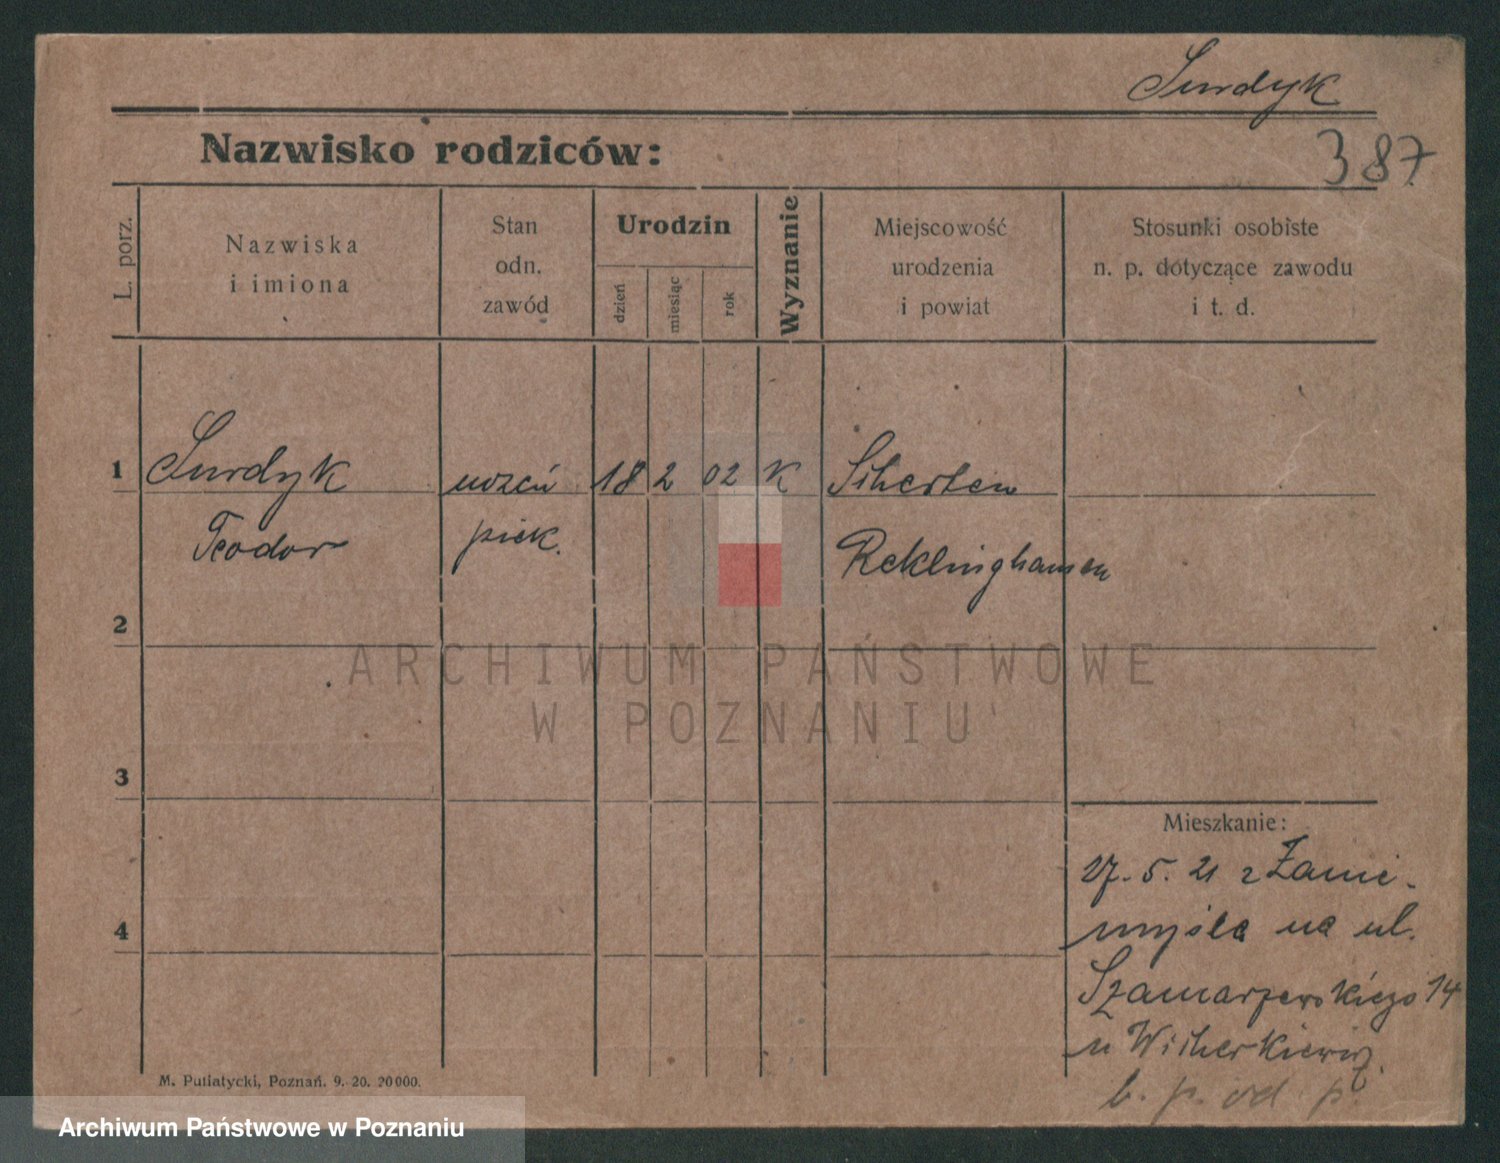 Surdyk
Nazwisko rodziców:
387
L. porz.
Nazwiska
i imiona
Stan
odn.
zawód
Urodzin
dzień
miesiąc
rok
Wyznanie
Miejscowość
urodzenia
i powiat
Stosunki osobiste
n. p. dotyczące zawodu
i t. d.
1 Surdyk uczeń 18 2 02 K
Teodor piek. Reklinghausen
2
ARCHIWUM PAŃSTWOWE
W POZNANIU
3
Mieszkanie:
27. 5. 21 z Zanie-
4 myśla na ul.
Szamarzewskiego 14
u Wicherkiewicz.
b. p. od p.
M. Putiatycki, Poznań. 9. 20. 20000.
Archiwum Państwowe w Poznaniu